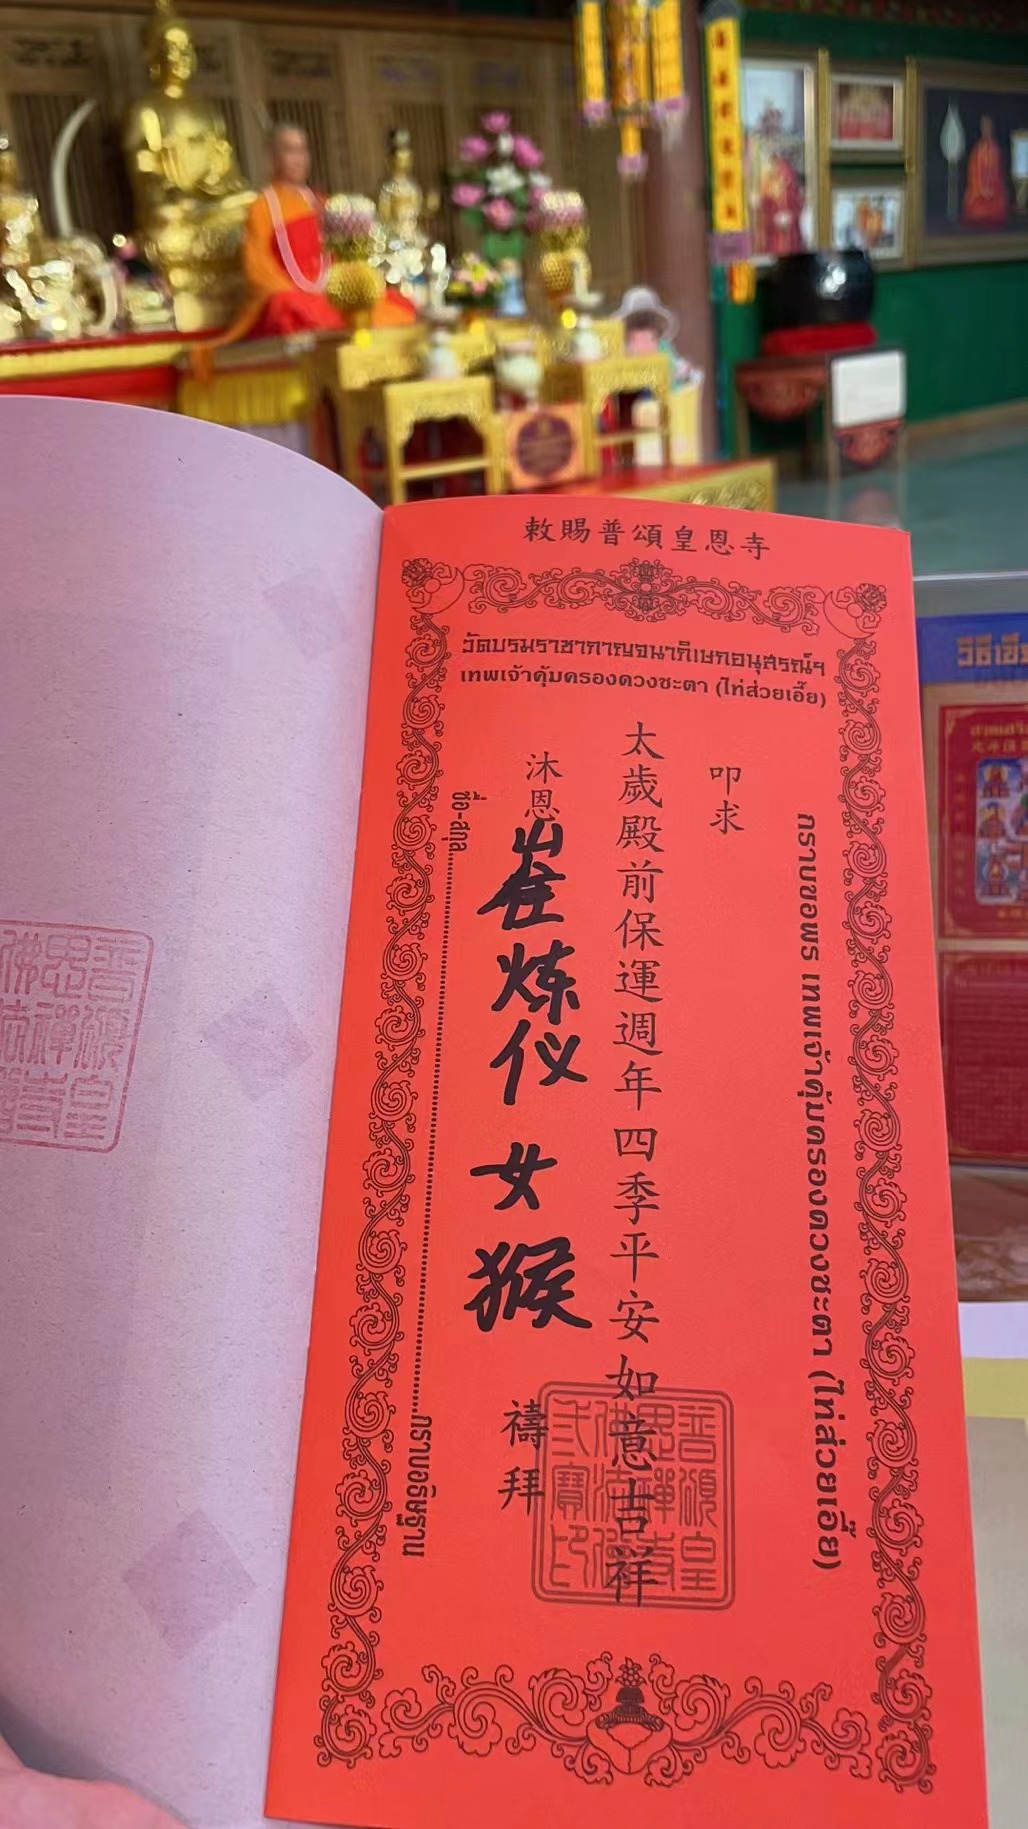 敕賜普頌皇恩寺
วัดบรมราชากาญจนาภิเษกอนุสรณ์ฯ
เทพเจ้าคุ้มครองดวงชะตา (ไท่ส่วยเอี๊ย)
กราบขอพร เทพเจ้าคุ้มครองดวงชะตา (ไท่ส่วยเอี๊ย)
叩求
太歲殿前保運週年四季平安如意吉祥
沐恩 崔炼仪 女 猴 禱拜
ชื่อ-สกุล....................กราบอธิษฐาน
普頌皇
恩禪寺
佛法僧
三寶印
วิธีเขีย